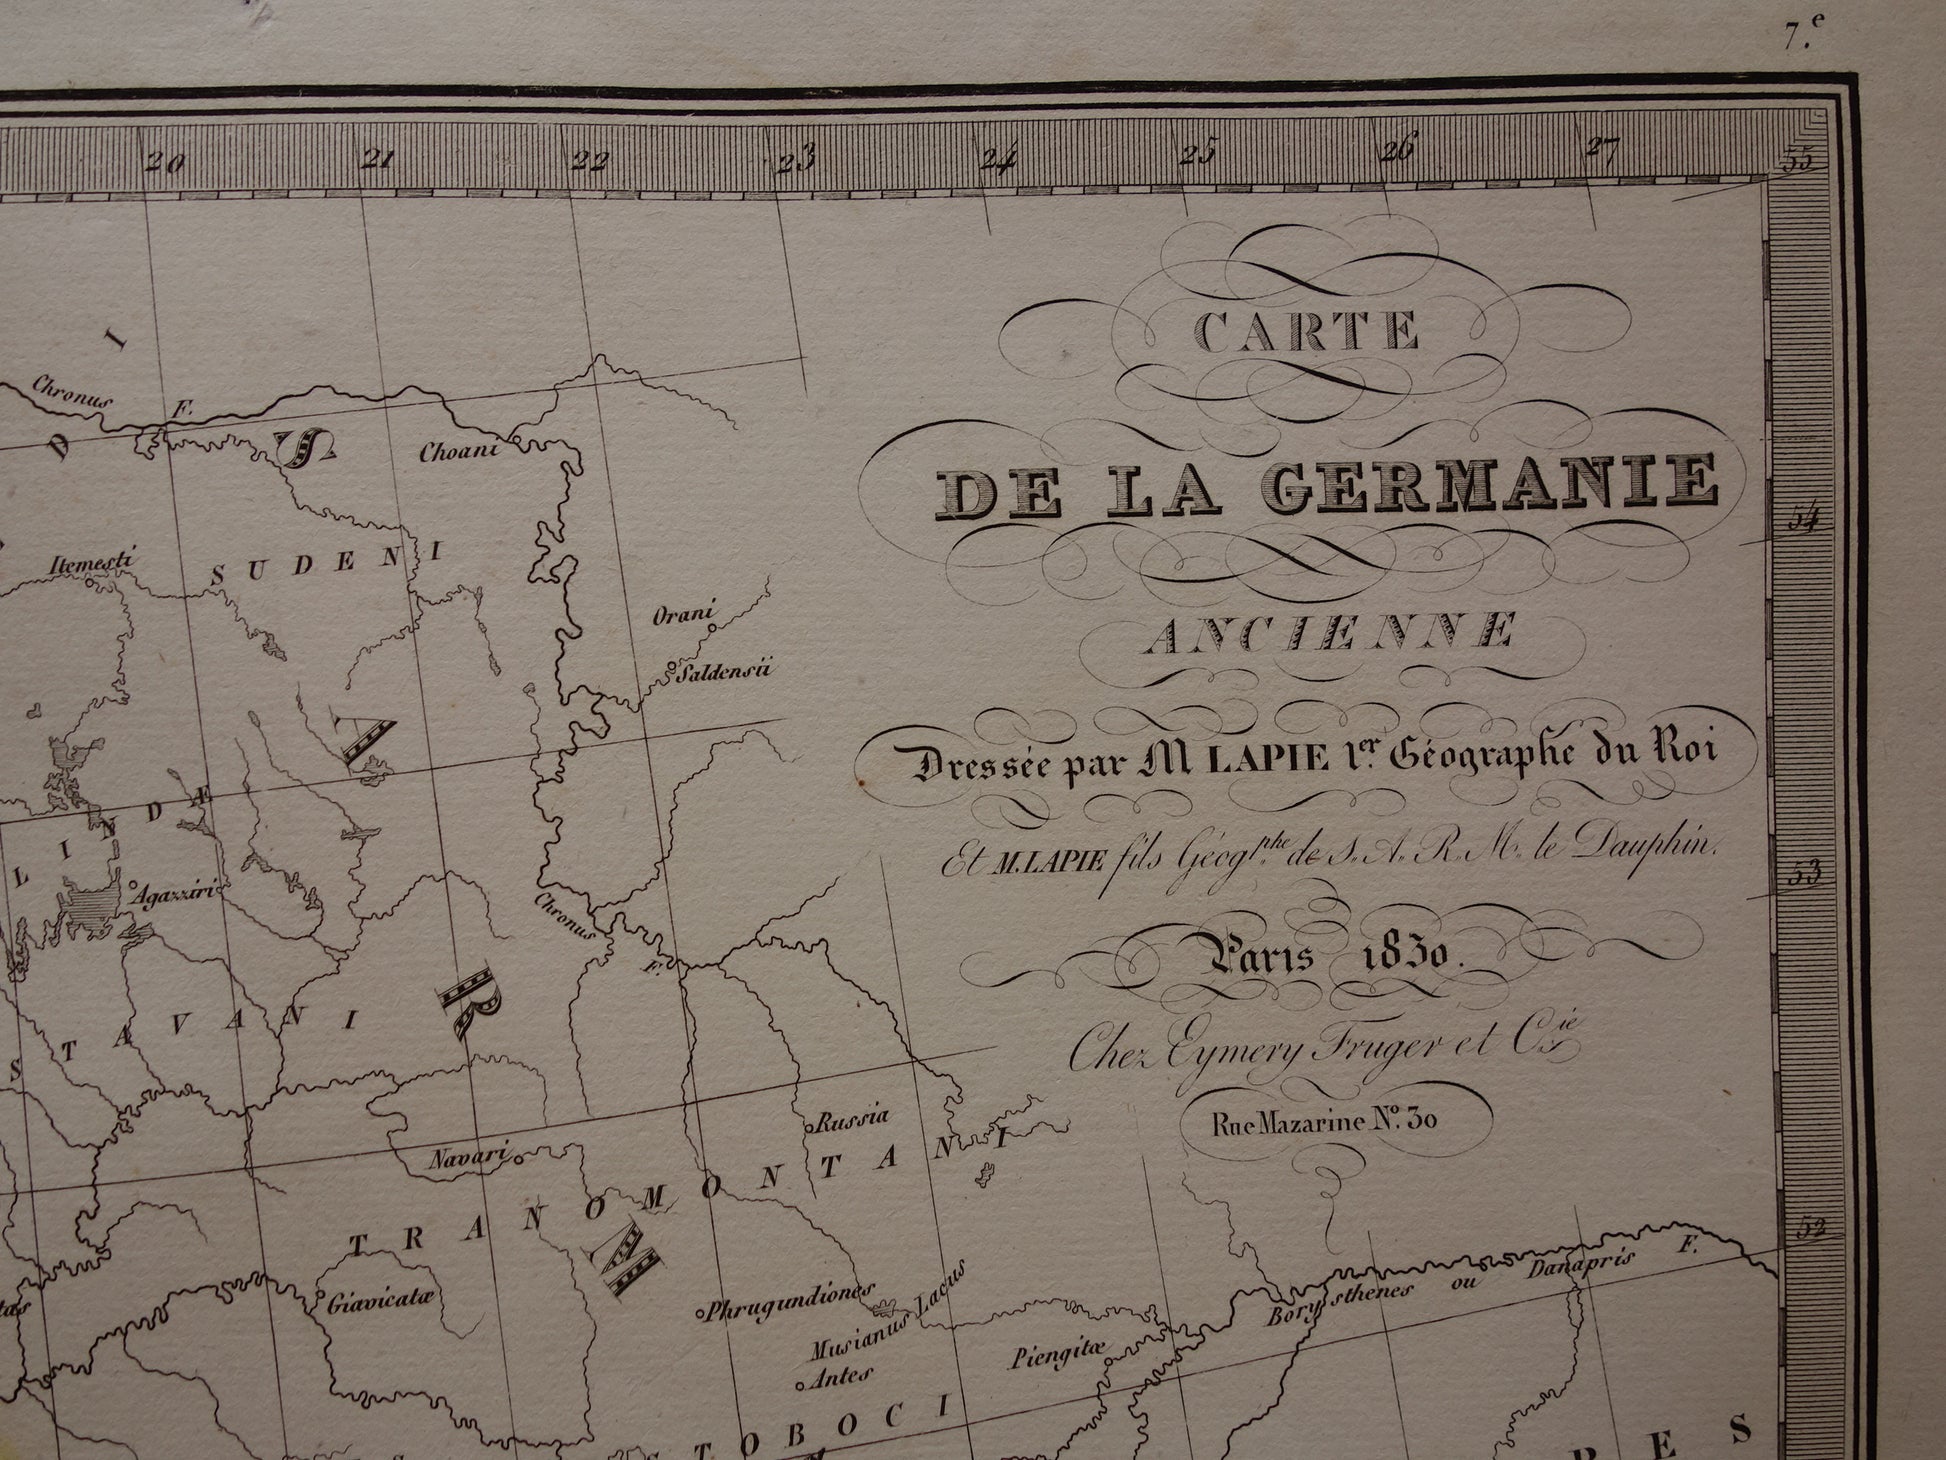 7.e
20 21 22 23 24 25 26 27 55
CARTE
DE LA GERMANIE
ANCIENNE
Dressée par M LAPIE 1er. Géographe du Roi
Et M. LAPIE fils Géogphe. de S. A. R. M. le Dauphin.
Paris 1830.
Chez Eymery Fruger et Cie.
Rue Mazarine No. 30
54
53
52
I
D
Chronus F.
S
Choani
Itemesti
SUDENI
Orani
Saldensii
A
LINDÆ
Agazziri
Chronus F.
R
STAVANI
Russia
Navari
TRANOMONTANI
M
Giavicatæ
Phrugundiones
Musianus Lacus
Antes
Piengitæ
Borysthenes ou Danapris F.
TOBOCI
RES